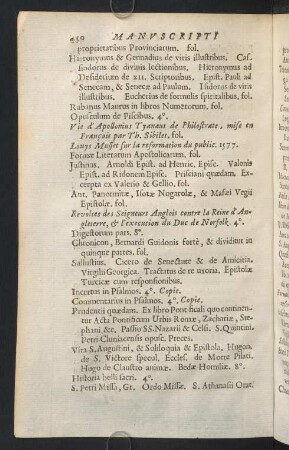 450 MANVSCRIPTI
proprietatibus Provinciarum. fol.
Hieronymus & Gennadius de viris illustribus. Cas-
siodorus de divinis lectionibus. Hieronymus ad
Desiderium de XII. Scriptoribus. Epist. Pauli ad
Senecam, & Senecæ ad Paulum. Isidorus de viris
illustribus, Eucherius de formulis spiritalibus. fol.
Rabanus Maurus in libros Numerorum. fol.
Opusculum de Piscibus. 4°.
Vie d'Apollonius Tyaneus de Philostrate, mise en
François par Th. Sibilet. fol.
Louys Musset sur la reformation du public. 1577.
Formæ Literarum Apostolicarum. fol.
Justinus. Arnoldi Epist. ad Henric. Episc. Valonis
Epist. ad Ridonem Episc. Prisciani quædam. Ex-
cerpta ex Valerio & Gellio. fol.
Ant. Panormitæ, Isotæ Nogarolæ, & Mafæi Vegii
Epistolæ. fol.
Revoltes des Seigneurs Anglois contre la Reine d'An-
gleterre, & l'execution du Duc de Norfolk. 4°.
Digestorum pars. 8°.
Chronicon, Bernardi Guidonis fortè, & dividitur in
quinque partes. fol.
Sallustius. Cicero de Senectute & de Amicitia.
Virgilii Georgica. Tractatus de re uxoria. Epistolæ
Turcicæ cum responsionibus.
Incertus in Psalmos. 4°. Copie.
Commentarius in Psalmos. 4°. Copie.
Prudentii quædam. Ex libro Pontificali quo continen-
tur Acta Pontificum Urbis Romæ, Zachariæ, Ste-
phani &c. Passio SS. Nazarii & Celsi. S. Quintini.
Petri Cluniacensis opusc. Preces.
Vita S. Augustini, & Soliloquia & Epistola. Hugon.
de S. Victore specul. Eccles. de Morte Pilati.
Hugo de Claustro animæ. Bedæ Homiliæ. 8°.
Historia belli sacri. 4°.
S. Petri Missa, Gr. Ordo Missæ. S. Athanasii Orat.